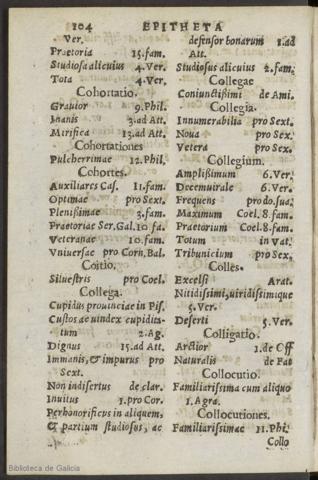 104 EPITHETA
Ver.
Praetoria 15. fam.
Studiosa alicuius 4. Ver.
Tota 4. Ver.
Cohortatio.
Grauior 9. Phil.
Inanis 3. ad Att.
Mirifica 13. ad Att.
Cohortationes
Pulcherrimae 12. Phil.
Cohortes.
Auxiliares Caes. 11. fam.
Optimae pro Sext.
Plenissimae 3. fam.
Praetoriae Ser. Gal. 10 fa.
Veteranae 10. fam.
Vniuersae pro Corn, Bal.
Coitio.
Siluestris pro Coel.
Collega.
Cupidus prouinciae in Pis.
Custos ac uindex cupidita-
tum 2. Ag.
Dignus 15. ad Att.
Immanis, & impurus pro
Sext.
Non indisertus de clar.
Inuitus 1. pro Cor.
Perhonorificus in aliquem,
& partium studiosus, ac
defensor bonarum 1. ad
Att.
Studiosus alicuius 2. fam.
Collegae
Coniunctissimi de Ami.
Collegia.
Innumerabilia pro Sext.
Noua pro Sex.
Vetera pro Sex.
Collegium.
Amplissimum 6. Ver.
Decemuirale 6. Ver.
Frequens pro do. sua.
Maximum Coel. 8. fam.
Praetorium Coel. 8. fam.
Totum in Vat.
Tribunicium pro Sex.
Colles.
Excelsi Arat.
Nitidissimi, uiridissimique
5. Ver.
Deserti 5. Ver.
Colligatio.
Arctior 1. de Off
Naturalis de Fat
Collocutio.
Familiarissima cum aliquo
1. Agra.
Collocutiones.
Familiarissimae 11. Phi.
Collo
Biblioteca de Galicia